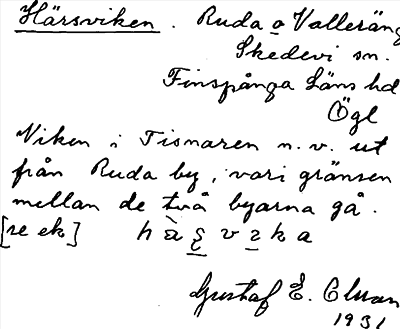 Härsviken. Ruda o Valleräng
Skedevi sn.
Finspånga Läns hd
Ögl
Viken i Tisnaren n.v. ut
från Ruda by, vari gränsen
mellan de två byarna gå.
[se ek] hàʂvɿka
Gustaf E. Olsson
1931